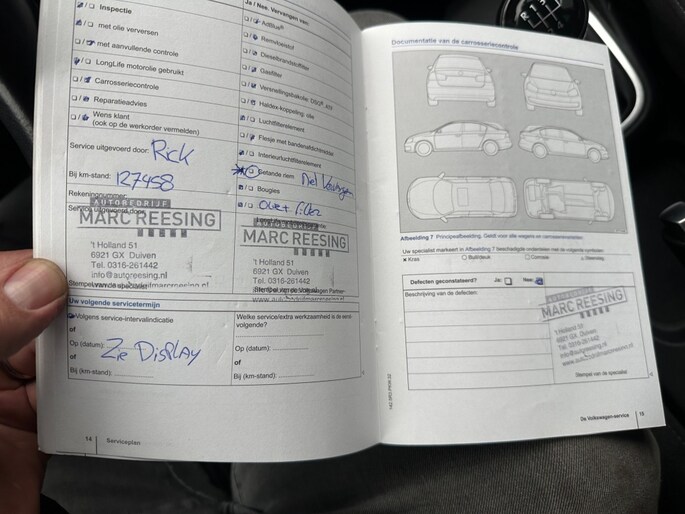 Inspectie
met olie verversen
met aanvullende controle
LongLife motorolie gebruikt
Carrosseriecontrole
Reparatieadvies
Wens klant
(ook op de werkorder vermelden)
Service uitgevoerd door: Rick
Bij km-stand: 127458
Rekeningnummer:
Service uitgevoerd door:
AUTOBEDRIJF
MARC REESING
't Holland 51
6921 GX Duiven
Tel. 0316-261442
info@autoreesing.nl
Uw volgende servicetermijn
Volgens service-intervalindicatie
of
Op (datum): Zie Display
of
Bij (km-stand):
14 Serviceplan
Ja / Nee. Vervangen van:
AdBlue®
Remvloeistof
Dieselbrandstoffilter
Gasfilter
Versnellingsbakolie: DSQ®, 4x4
Haldex-koppeling: olie
Luchtfilterelement
Flesje met bandenafdichtmiddel
Interieurluchtfilterelement
Getande riem
Bougies
Olie + filter
AUTOBEDRIJF
MARC REESING
't Holland 51
6921 GX Duiven
Tel. 0316-261442
info@autoreesing.nl
Welke service/extra werkzaamheid is de eerst-
volgende?
Op (datum):
of
Bij (km-stand):
Documentatie van de carrosseriecontrole
Afbeelding 7 Principeafbeelding. Geldt voor alle wagens en carrosserievarianten.
Uw specialist markeert in Afbeelding 7 beschadigde onderdelen met de volgende symbolen:
x Kras
Buil/deuk
Corrosie
Steenslag
Defecten geconstateerd? Ja: Nee:
Beschrijving van de defecten:
AUTOBEDRIJF
MARC REESING
't Holland 51
6921 GX Duiven
Tel. 0316-261442
info@autoreesing.nl
Stempel van de specialist
De Volkswagen-service 15